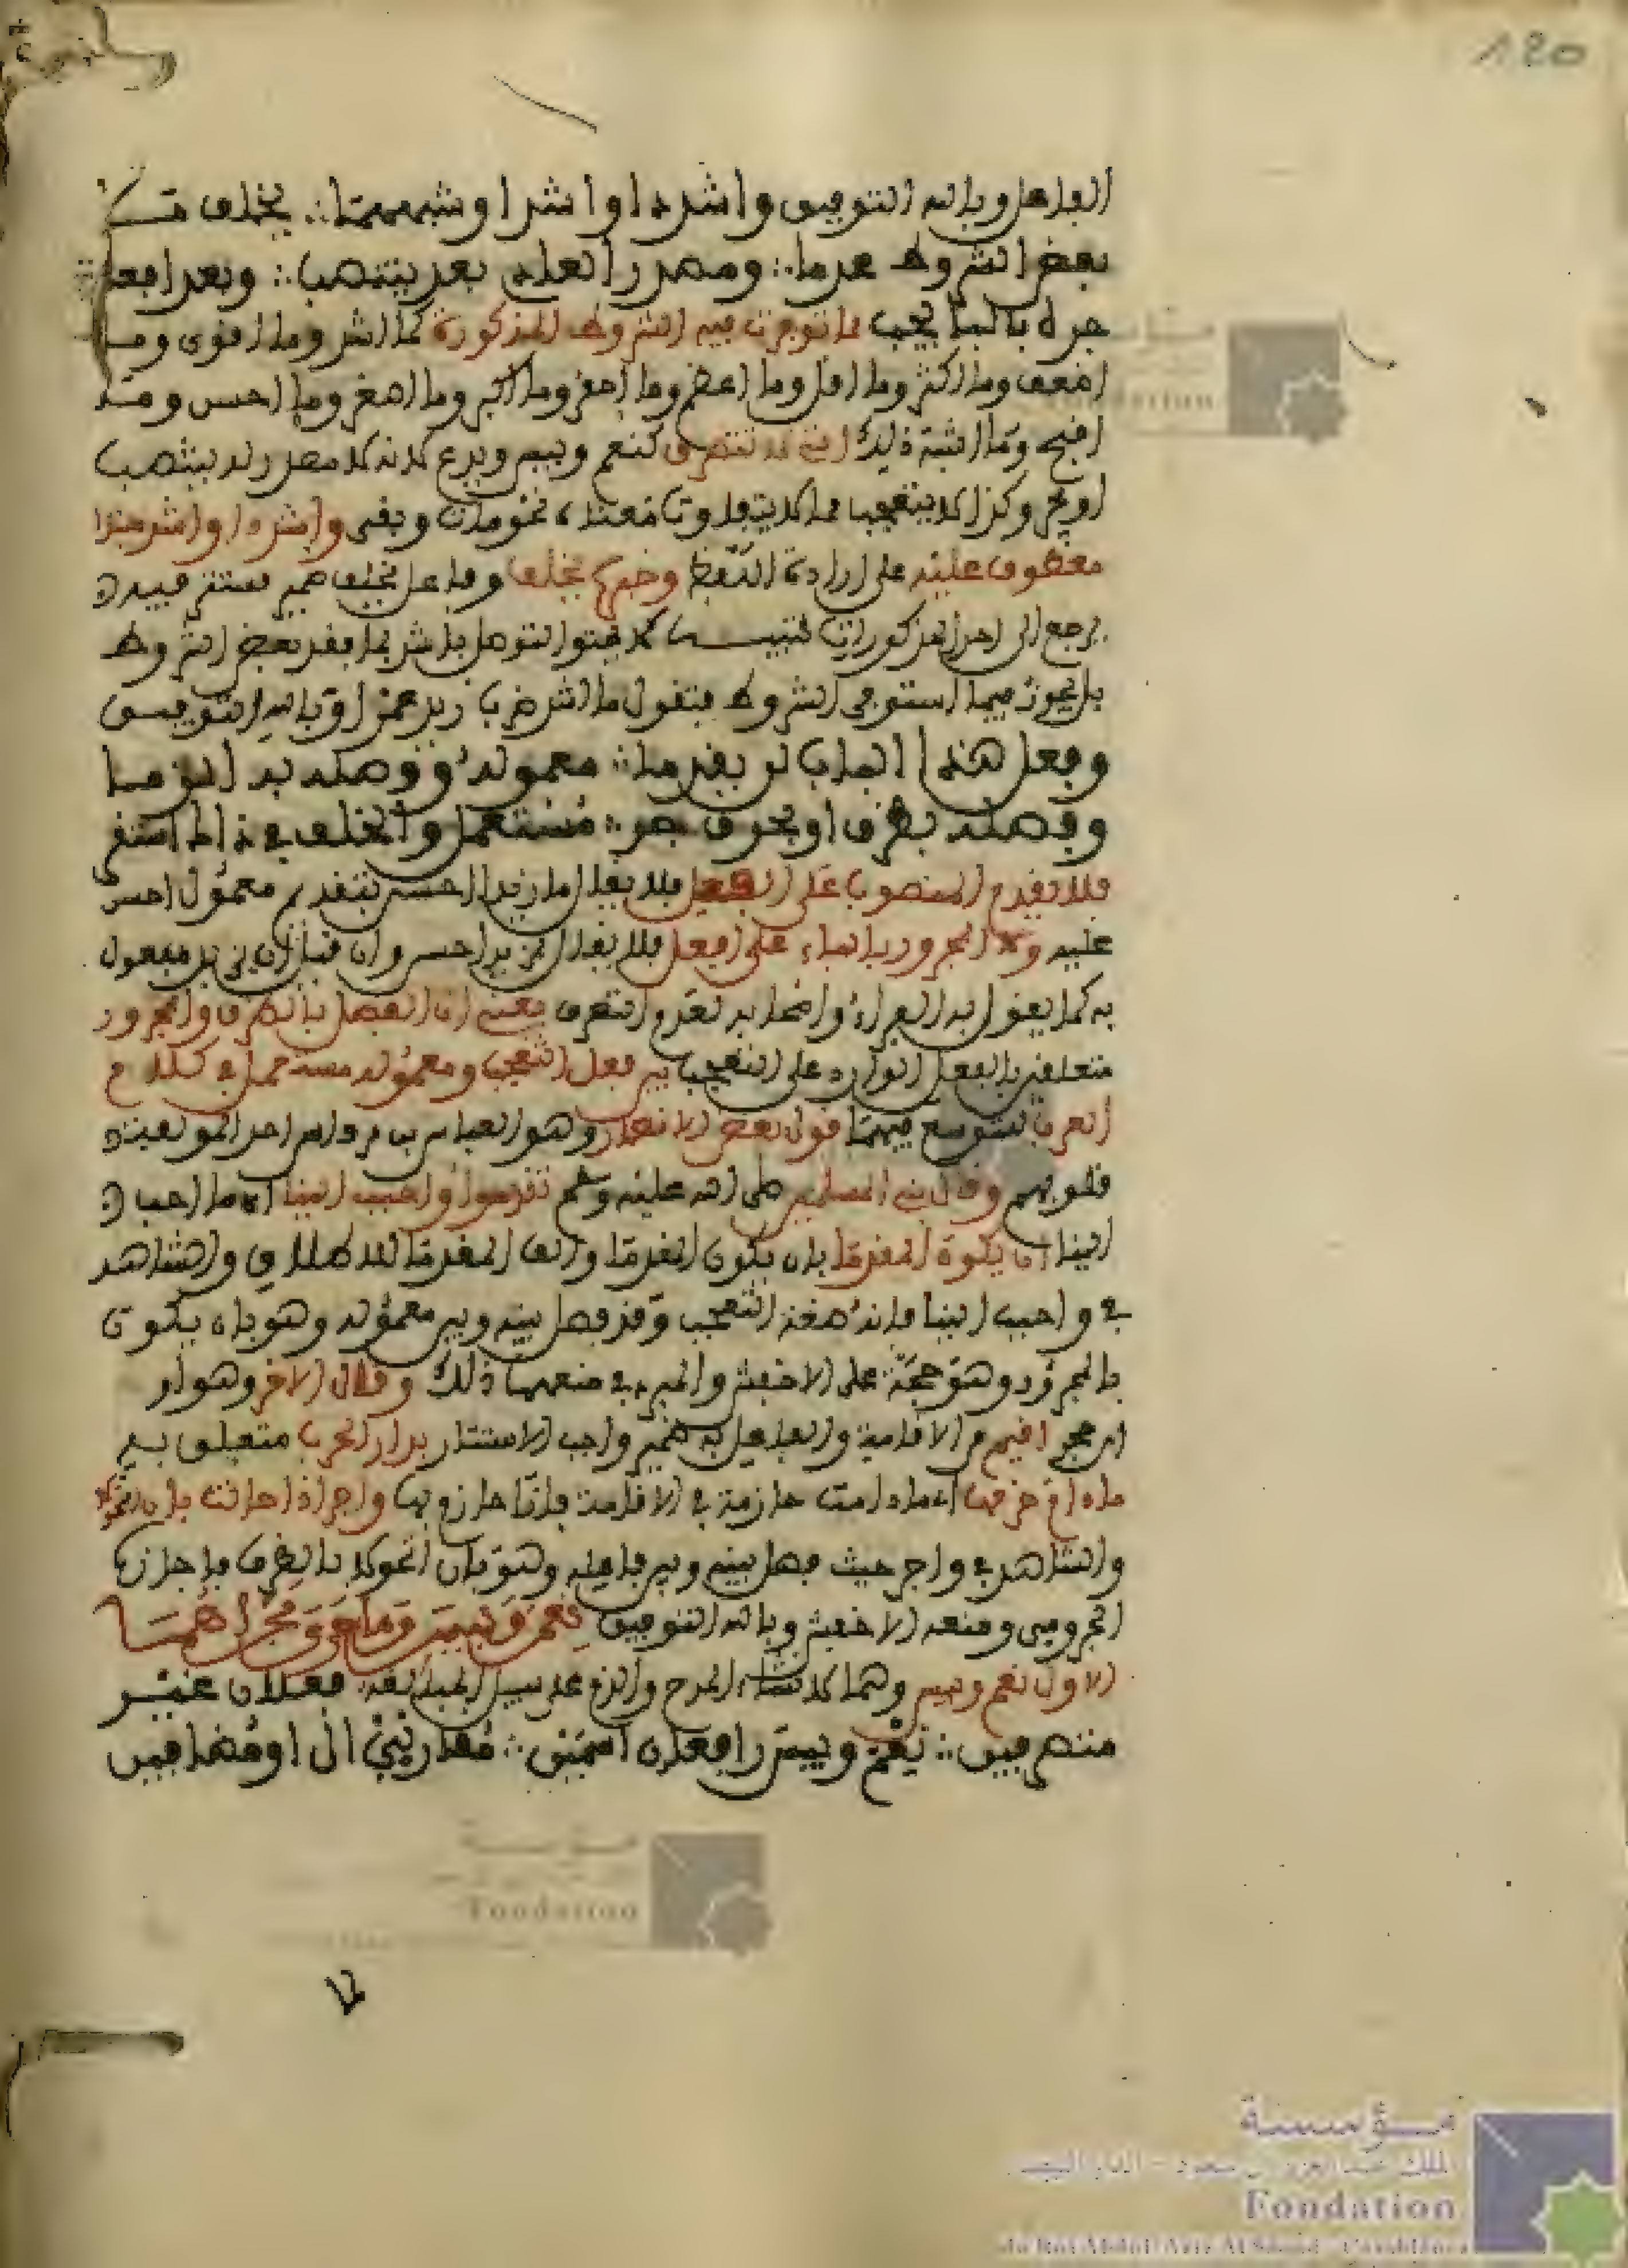 120
الفاعل وبالله التوفيق واشدد او اشد او شبههما ∴ يخلف ما
بعض الشروط عدما ∴ ومصدر العادم بعد ينتصب ∴ وبعد افعل
جره بالبا يجب ما توجدت فيه الشروط المذكورة كما اشد وما اقوى وما
اضعف وما اكثر وما اقل وما اعظم وما احقر وما اكبر وما اصغر وما احسن وما
اقبح وما اشبه ذلك التي لا تتصرف كنعم وبيس ويدع لانه لا مصدر له ينتصب
او يجر وكذا لا يتعجب مما لا يتفاوت معناه نحو مات وفنى واشدد او اشد هذا
معطوف عليه على ارادة اللفظ وخبره يخلف وفاعل يخلف ضمير مستتر فيه
يرجع الى احد المذكورات تنبيه لا يختص التوصل باشد بما فقد بعض الشروط
بل يجوز فيما استوفى الشروط فتقول ما اشد ضرب زيد عمرا وبالله التوفيق
وفعل هذا الباب لن يقدما ∴ معموله ووصله به الزما
وفصله بظرف او بحرف جر ∴ مستعمل والخلف في ذاك استقر
فلا يقدم المنصوب على الفعل فلا يقال ما زيدا احسن بتقديم معمول احسن
عليه ولا المجرور بالباء على افعل فلا يقال بزيد احسن وان قيل ان بزيد مفعول
به كما يقول به الفراء وافعل به لعدم التصرف يعني ان الفصل بالظرف والمجرور
متعلقين بالفعل الوارد على التعجب بين فعل التعجب ومعموله مستعمل في كلام
العرب لتوسع فيهما قول بعض الانصار وهو العباس بن مرداس احد المؤلفة
قلوبهم وقال نبي المسلمين صلى الله عليه وسلم تقدموا واحبب الينا اي ما احب
الينا ان يكون المقدما بان يكون المقدما والف المقدما للاطلاق والشاهد
في واحبب الينا فانه صيغة التعجب وقد فصل بينه وبين معموله وهو بان يكون
بالمجرور وهو حجة على الاخفش والمبرد في منعهما ذلك وقال الاخر وهو اوس
ابن حجر اقيم من الاقامة والفاعل به ضمير واجب الاستتار بدار الحرب متعلق به
ما دام حزمها اي ما دامت حازمة في الاقامة فانا حازم بها واحر اذا حالت بان اتحولا
والشاهد في واحر حيث فصل بينه وبين فاعله وهو بان اتحولا بالظرف فاجازه
الجرمي ومنعه الاخفش وبالله التوفيق نعم وبيس وما جرى مجراهما
الاول نعم وبيس وهما لانشاء المدح والذم على سبيل المبالغة فعلان غير
متصرفين ∴ نعم وبيس رافعان اسمين ∴ مقارني ال او مضافين
مؤسسة
الملك عبد العزيز آل سعود - الدار البيضاء
Fondation
du Roi Abdul-Aziz Al Saoud - Casablanca